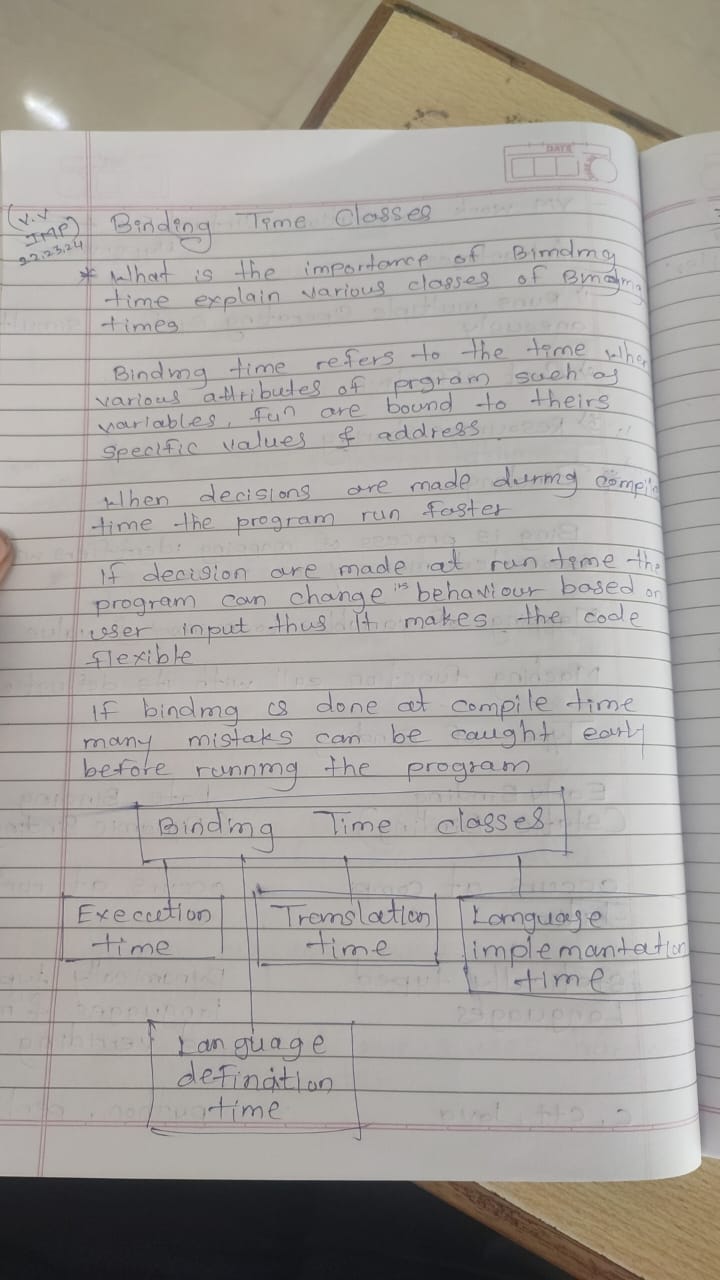 DATE
(V.V
IMP)
22,23,24
Binding Time Classes
* What is the importance of Binding
time explain various classes of Binding
times
Binding time refers to the time when
various attributes of prgram such as
variables, fun are bound to theirs
specific values & address.
When decisions are made during compile
time the program run faster
If decision are made at run time the
program can change its behaviour based on
user input thus It makes the code
flexible
If binding is done at compile time
many mistaks can be caught early
before running the program
Binding Time classes
Execution
time
Translation
time
Language
implemantation
time
Language
defination
time